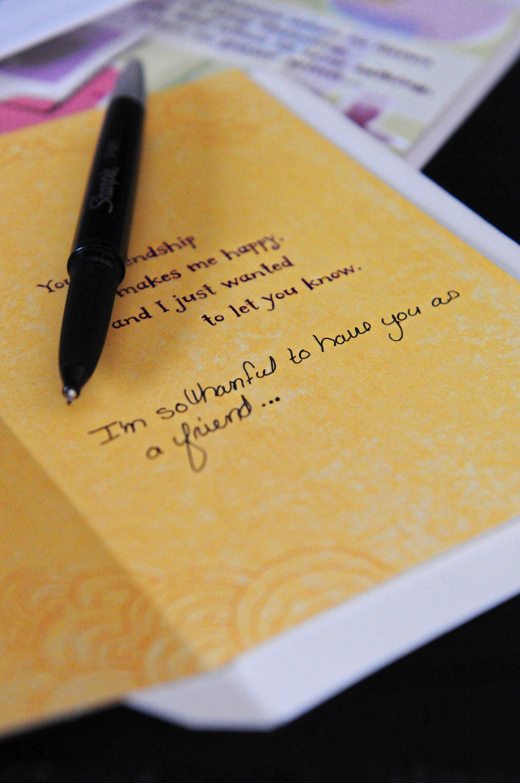 Sharpie
You endship
makes me happy,
and I just wanted
to let you know.
I'm so thanful to have you as
a friend...